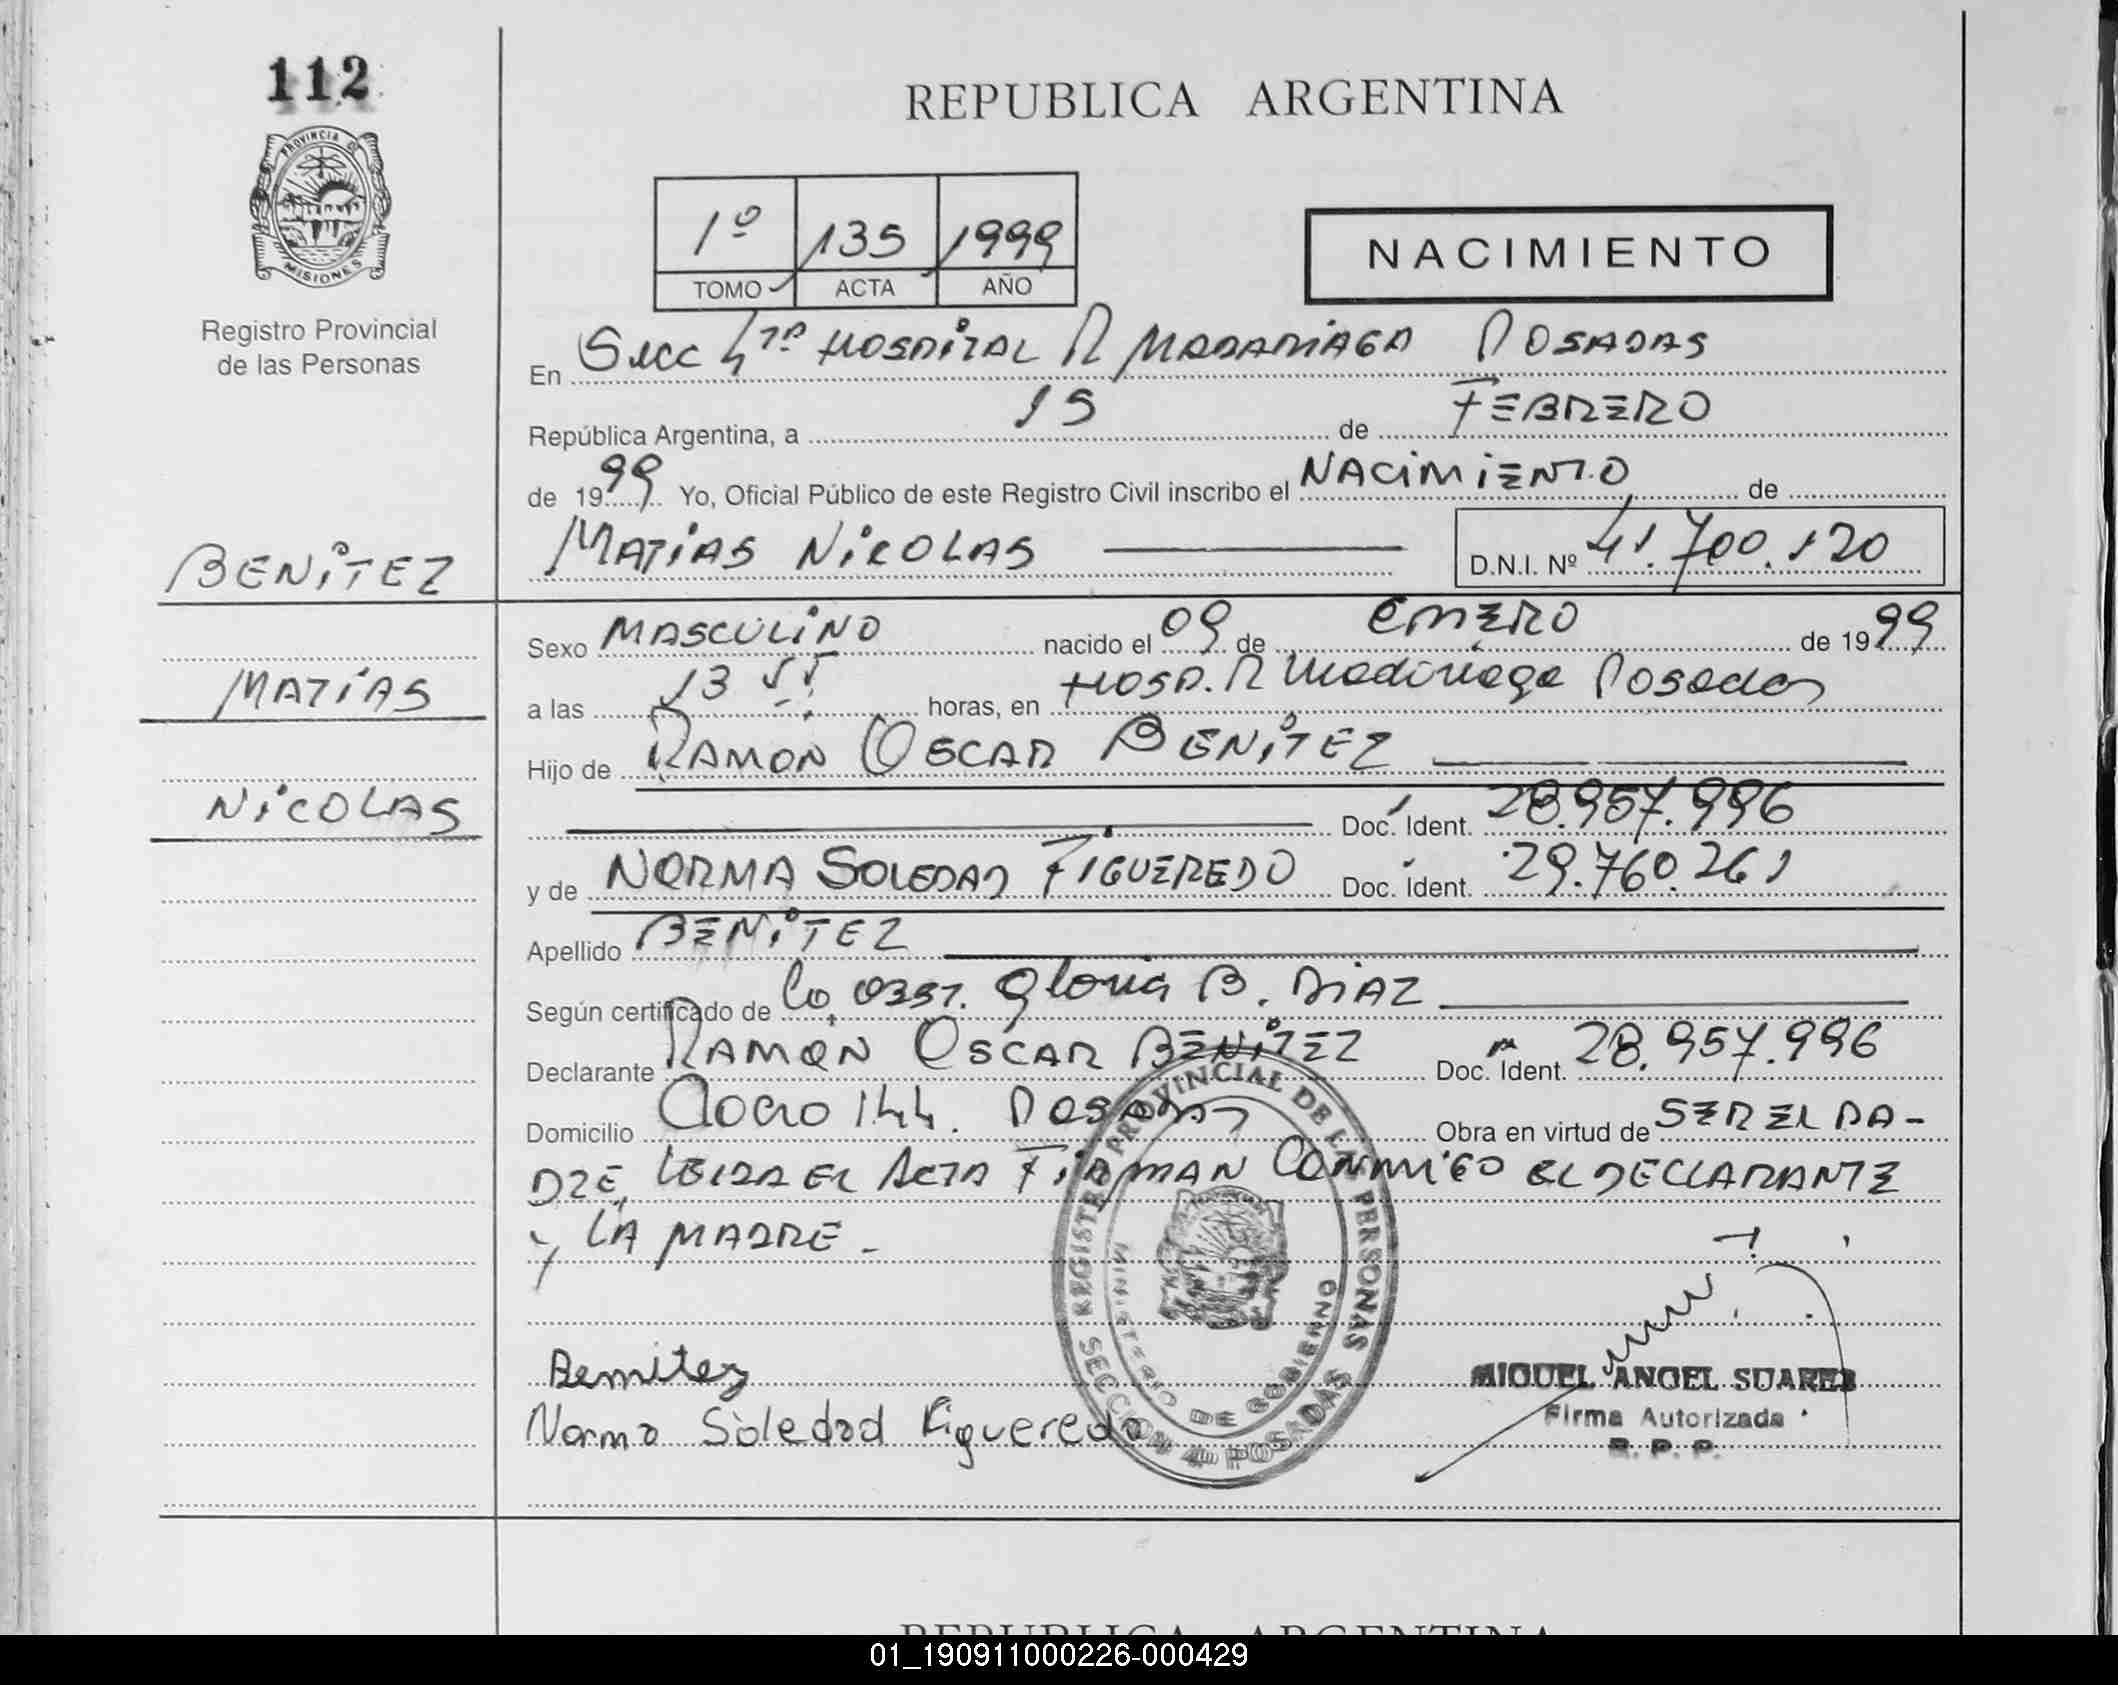 112
PROVINCIA DE
MISIONES
Registro Provincial
de las Personas
REPUBLICA ARGENTINA
1º 135 1999
TOMO ACTA AÑO
NACIMIENTO
En Secc 4ta HOSPITAL R MADARIAGA POSADAS
República Argentina, a 15 de FEBRERO
de 1999 Yo, Oficial Público de este Registro Civil inscribo el NACIMIENTO de
BENITEZ
MATIAS NICOLAS
D.N.I. Nº 41.700.120
Sexo MASCULINO nacido el 09 de ENERO de 1999
MATÍAS
a las 13 55 horas, en HOSP. R Madariaga Posadas
Hijo de RAMON OSCAR BENITEZ
NICOLAS
Doc. Ident. 28.957.996
y de NORMA SOLEDAD FIGUEREDO Doc. Ident. 29.760.261
Apellido BENITEZ
Según certificado de Lo. OBST. Gloria B. DIAZ
Declarante RAMON OSCAR BENITEZ Doc. Ident. 28.957.996
Domicilio 144. POSADAS Obra en virtud de SER EL PA-
DRE, LEIDA EL ACTA FIRMAN CONMIGO EL DECLARANTE
Y LA MADRE -
REGISTRO PROVINCIAL DE LAS PERSONAS
MINISTERIO DE GOBIERNO
SECCION 4 POSADAS
Benitez
Norma Soledad Figueredo
MIGUEL ANGEL SUAREZ
Firma Autorizada
R. P. P.
REPUBLICA ARGENTINA
01_190911000226-000429